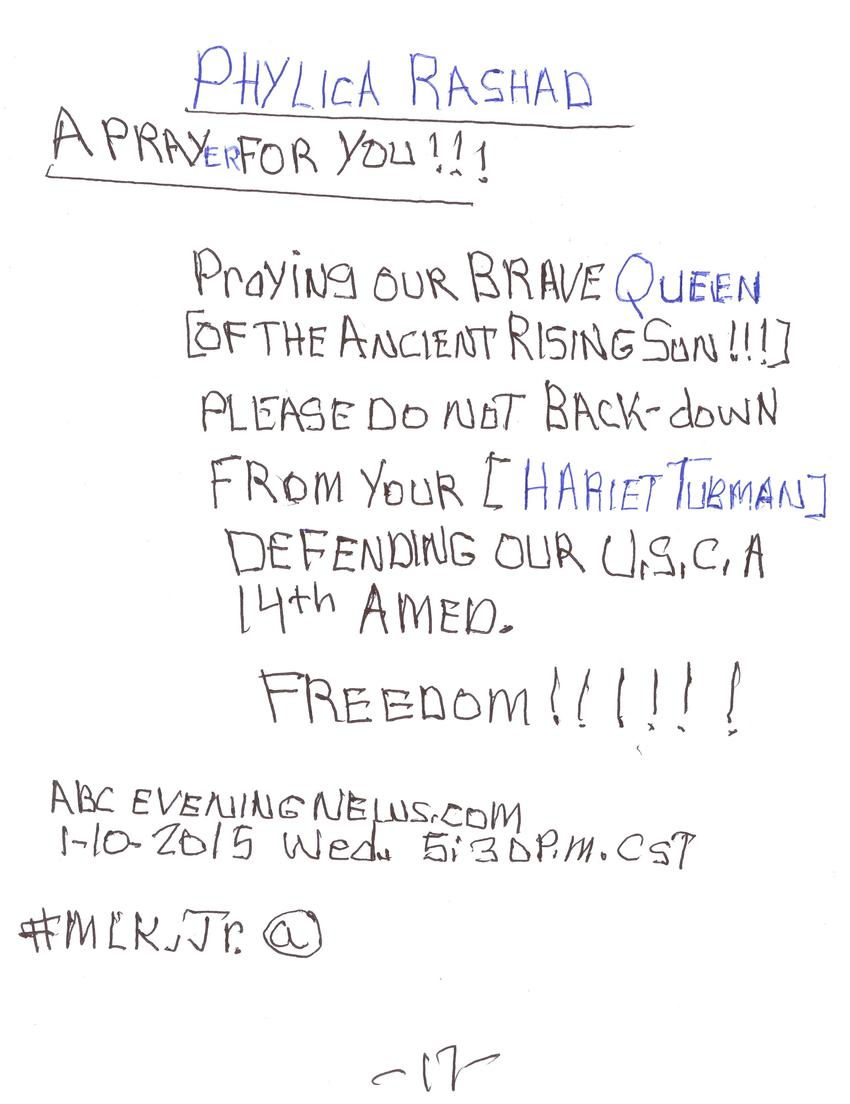 PHYLICA RASHAD
A PRAYER FOR YOU!!!
Praying OUR BRAVE QUEEN
[OF THE ANCIENT RISING SUN!!!]
PLEASE DO NOT BACK-dOWN
FROM YOUR [HARIET TUBMAN]
DEFENDING OUR U.S.C.A
14th AMED.
FREEDOM!!!!!!
ABC EVENING NEWS.COM
1-10-2015 Wed. 5:30P.M. CST
#MLK,Jr. @
-17-